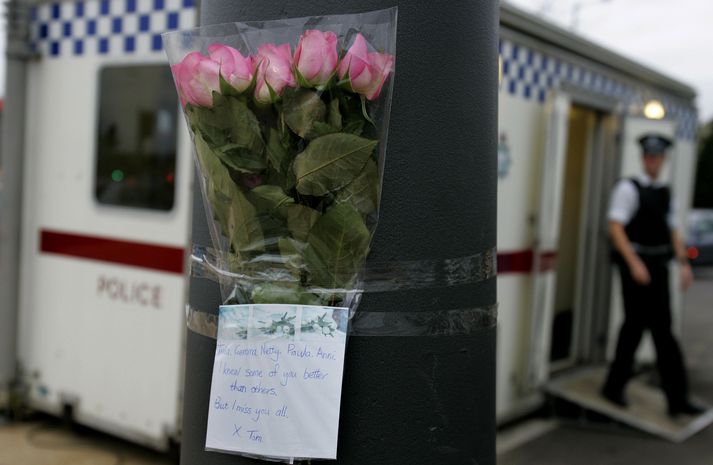 POLICE
Tania, Gemma, Netty, Paula, Anni.
I knew some of you better
than others.
But I miss you all.
X Tom